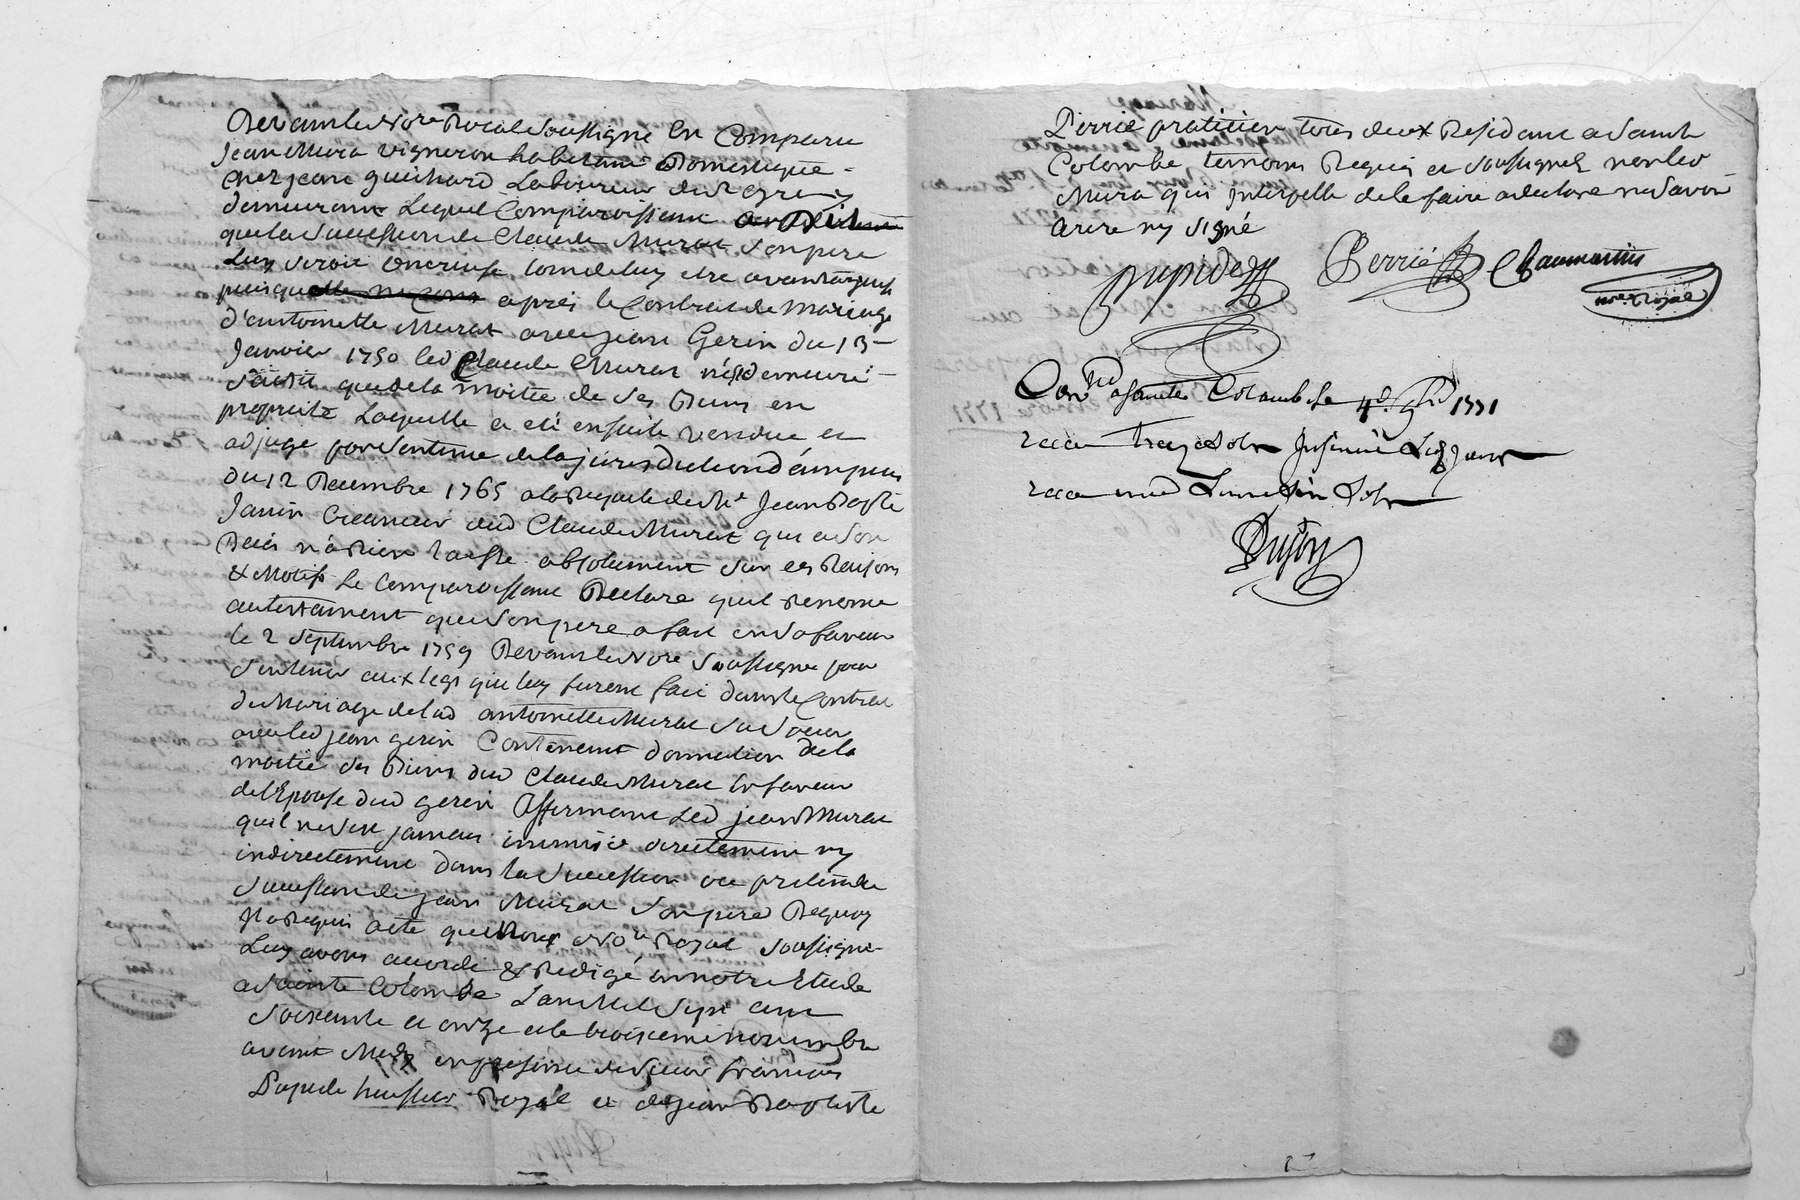 Devant le No.re Royal Soussigné En Comparu
Jean Mura vigneron habitant Domestique
chez jean guichard Laboureur du
demeurant Lequel Comparoissant
que la Succession de Claude Murat Son pere
Luy Seroit onereuse loin de luy etre avantageuse
puisque apres le Contrat de Mariage
d'antoinette Murat avec jean Gerin du 13
Janvier 1750 led Claude Murat n'est demeuré
Saisit que de la moitie de Ses Biens en
propriété Laquelle a eté ensuite vendue et
adjugé par Sentence de la jurisdiction d'ampuis
du 12 Decembre 1765 a la Requete de Me Jean Bapte
Janin Creancier dud Claude Murat qui a Son
Deces n'a Rien laissé absolument Sur ces Raisons
& Motifs Le Comparoissant Declare quil Renonce
au testament que Son pere a fait en Sa faveur
le 2 Septembre 1759 Devant le No.re Soussigné pour
S'en tenir aux legs qui luy furent fait dans le Contrat
de Mariage de lad antoinette Murat Sa Soeur
avec led jean gerin Contenant donnation de la
moitié des Biens dud Claude Murat En faveur
de l'Epouse dud gerin Affirmant Led jean Murat
quil ne s'est jamais immiscé directement ny
indirectement dans la Succession ou pretendue
Succession de jean Murat Son pere D Requoy
Il a Requis acte que Nous No.re Royal Soussigné
Luy avons accordé & Redigé en notre Etude
a Sainte Colombe L'an Mil Sept cent
Soixante et onze et le troisieme novembre
avant Midy en presence de Sieur francois
Dupuide huissier Royal et de jean Baptiste
Perrié praticien tous deux Residant a Sainte
Colombe temoins Requis et Soussignés non led
Mura qui Interpellé de le faire a declaré ne Savoir
Ecrire ny Signé
Dupuide Perrié Chaumartin
nore Royal
Con.lé a Sainte Colombe le 4e 9bre 1771
recu treize Sols
recu Sols
Dujon